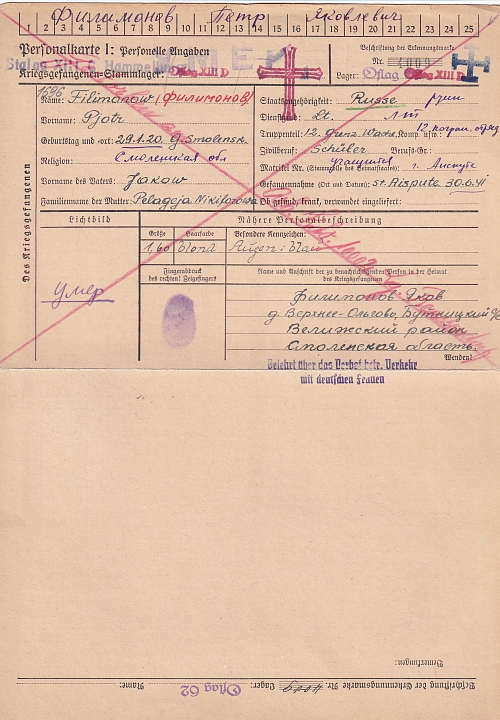 Филимонов Петр Яковлевич
1 2 3 4 5 6 7 8 9 10 11 12 13 14 15 16 17 18 19 20 21 22 23 24 25
Personalkarte I: Personelle Angaben
Kriegsgefangenen-Stammlager: Oflag XIII D
Stalag XIII C Hammelburg
Beschriftung der Erkennungsmarke
Nr. 4009
Lager: Oflag XIII D
1696
Des Kriegsgefangenen
Name: Filimonow (Филимонов)
Vorname: Pjotr
Geburtstag und -ort: 29.1.20. G. Smolensk.
Religion: Смоленская обл
Vorname des Vaters: Jakow
Familienname der Mutter: Pelageja Nikiforowa
Staatsangehörigkeit: Russe
Dienstgrad: Lt.
Truppenteil: 12. Grenz Wache Kom.
Zivilberuf: Schüler Berufs-Gr.:
Matrikel Nr. (Stammrolle des Heimatstaates):
Gefangennahme (Ort und Datum): St. Aispute 30.6.41
Ob gesund, krank, verwundet eingeliefert:
Lichtbild
Nähere Personalbeschreibung
Größe
Haarfarbe
Besondere Kennzeichen:
1,60 blond Augen: blau
Fingerabdruck
des rechten! Zeigefingers
Name und Anschrift der zu benachrichtigenden Person in der Heimat
des Kriegsgefangenen
умер
Филимонов Яков
д. Верхнее-Ольгово, Бутницкий с/с
Велижский район
Смоленская область.
Wenden!
Belehrt über das Verbot betr. Verkehr
mit deutschen Frauen
Bemerkungen:
Beschriftung der Erkennungsmarke Nr. 4009 Lager: Oflag 62 Name: